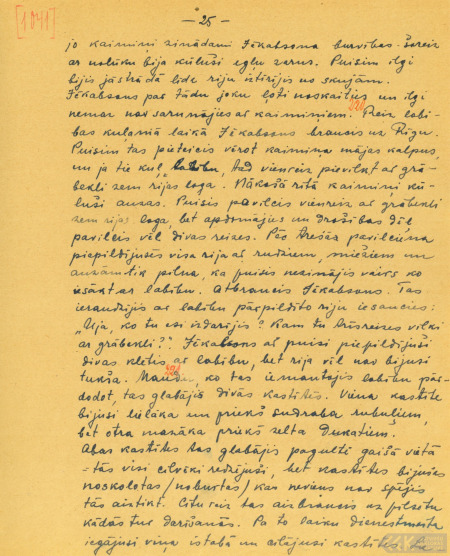 [1041]
- 25 -
jo kaimiņi zinādami Jēkabsona burvības šoreiz
ar nolūku bija kūluši egļu zarus. Puisim ilgi
bijis jāstrādā līdz riju iztīrījis no skujām.
Jēkabsons par tādu joku ļoti noskaities un ilgi
nemaz nav sarunājies ar kaimiņiem. Reiz labī-
bas kuļamā laikā Jēkabsons braucis uz Rīgu.
Puisim tas pieteicis vērot kaimiņa mājas kalpus,
un ja tie kuļ labību, tad vienreiz pievilkt ar grā-
bekli zem rijas loga. Nākošā rītā kaimiņi kū-
luši auzas. Puisis pavilcis vienreiz ar grābekli
zem rijas loga, bet apdomājies un drošības dēļ
pavilcis vēl divas reizes. Pēc trešās pavilciena
piepildījusies visa rija ar rudziem, miežiem un
auzām tik pilna, ka puisis nezinājis vairs ko
iesākt ar labību. Atbraucis Jēkabsons. Tas
ieraudzījis ar labību pārpildīto riju iesaucies:
"Vja, ko tu esi izdarījis? Kam tu trīsreizes vilki
ar grābekli?" Jēkabsons ar puisi piepildījuši
divas klētis ar labību, bet rija vēl nav bijusi
tukša. Naudu, ko tas iemantojis labību pār-
dodot, tas glabājis divās kastītēs. Viena kastīte
bijusi lielāka un priekš sudraba rubuļiem,
bet otra mazāka priekš zelta dukatiem.
Abas kastītes tas glabājis pagultī gaišā vietā
- tās visi cilvēki redzējuši, bet kastītes bijušas
noskaitotas /noburtas/ kas neviens nav spējis
tās aiztikt. Citureiz tas aizbraucis uz pilsētu
kādās tur darīšanās. Pa to laiku dienestmeita
iegājusi viņa istabā un cilājusi kastītes